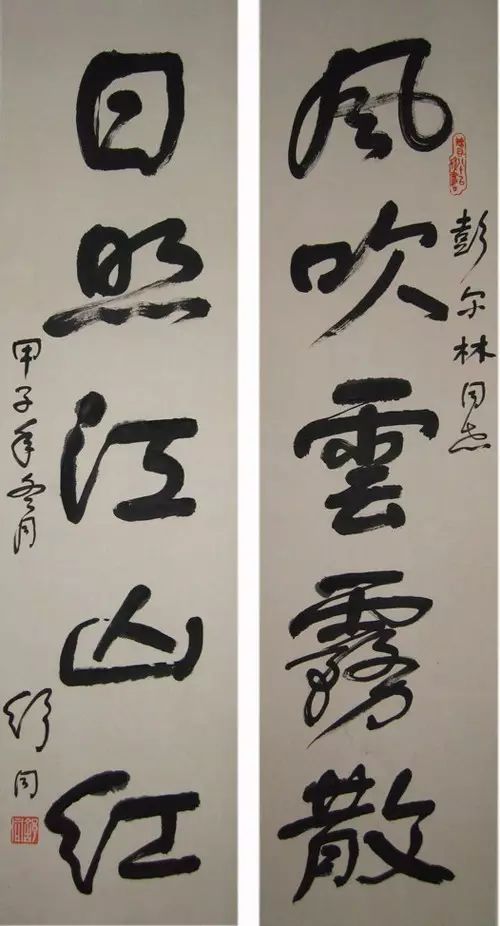 風吹雲霧散
彭尔林同志
日照江山红
甲子年冬月
舒同